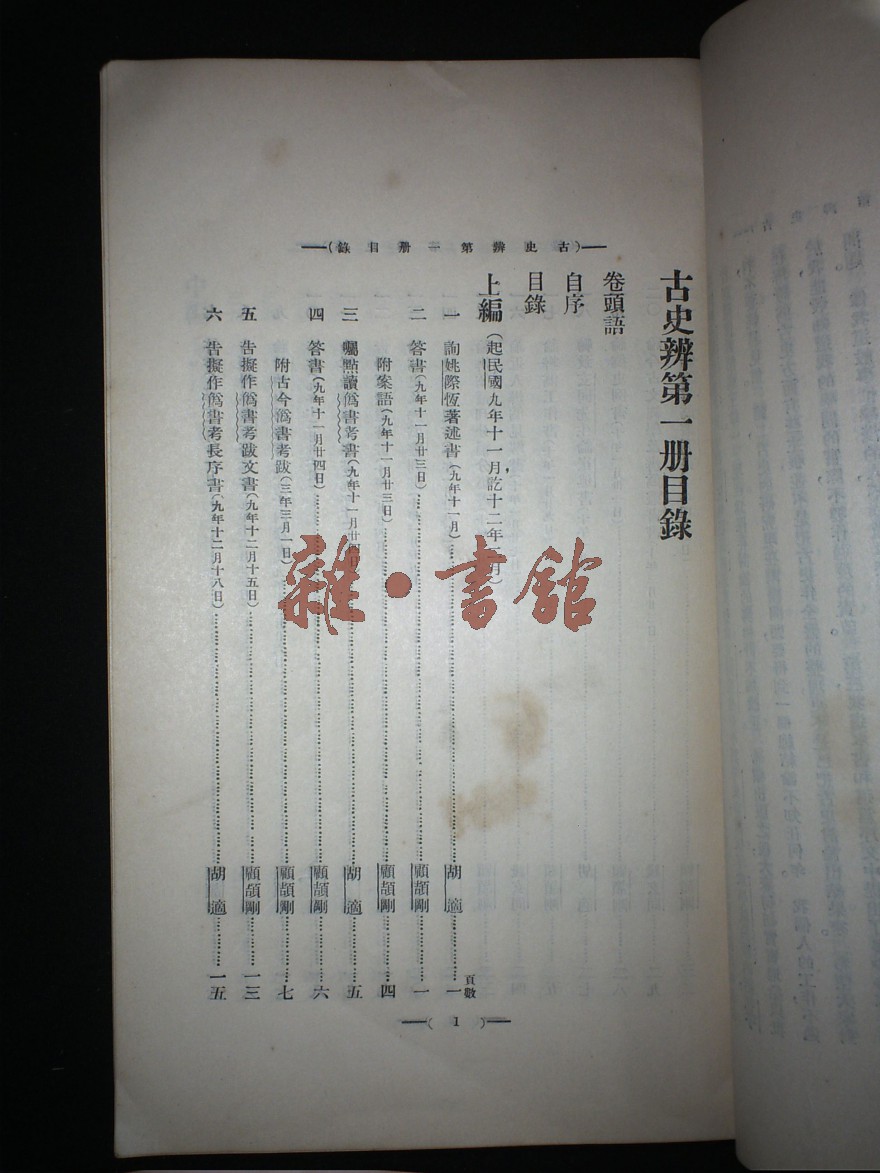 (古史辨第一册目錄)
古史辨第一册目錄
卷頭語
自序
目錄
上編(起民國九年十一月,訖十二年 月)
頁數
一 詢姚際恆著述書(九年十一月)……胡適……一
二 答書(九年十一月廿三日)……顧頡剛……一
附案語(九年十一月廿三日)……顧頡剛……四
三 囑點讀僞書考書(九年十一月廿四日)……胡適……五
四 答書(九年十一月廿四日)……顧頡剛……六
附古今僞書考跋(三年三月一日)……顧頡剛……七
五 告擬作僞書考跋文書(九年十二月十五日)……顧頡剛……一三
六 告擬作僞書考長序書(九年十二月十八日)……胡適……一五
(1)
雜·書館